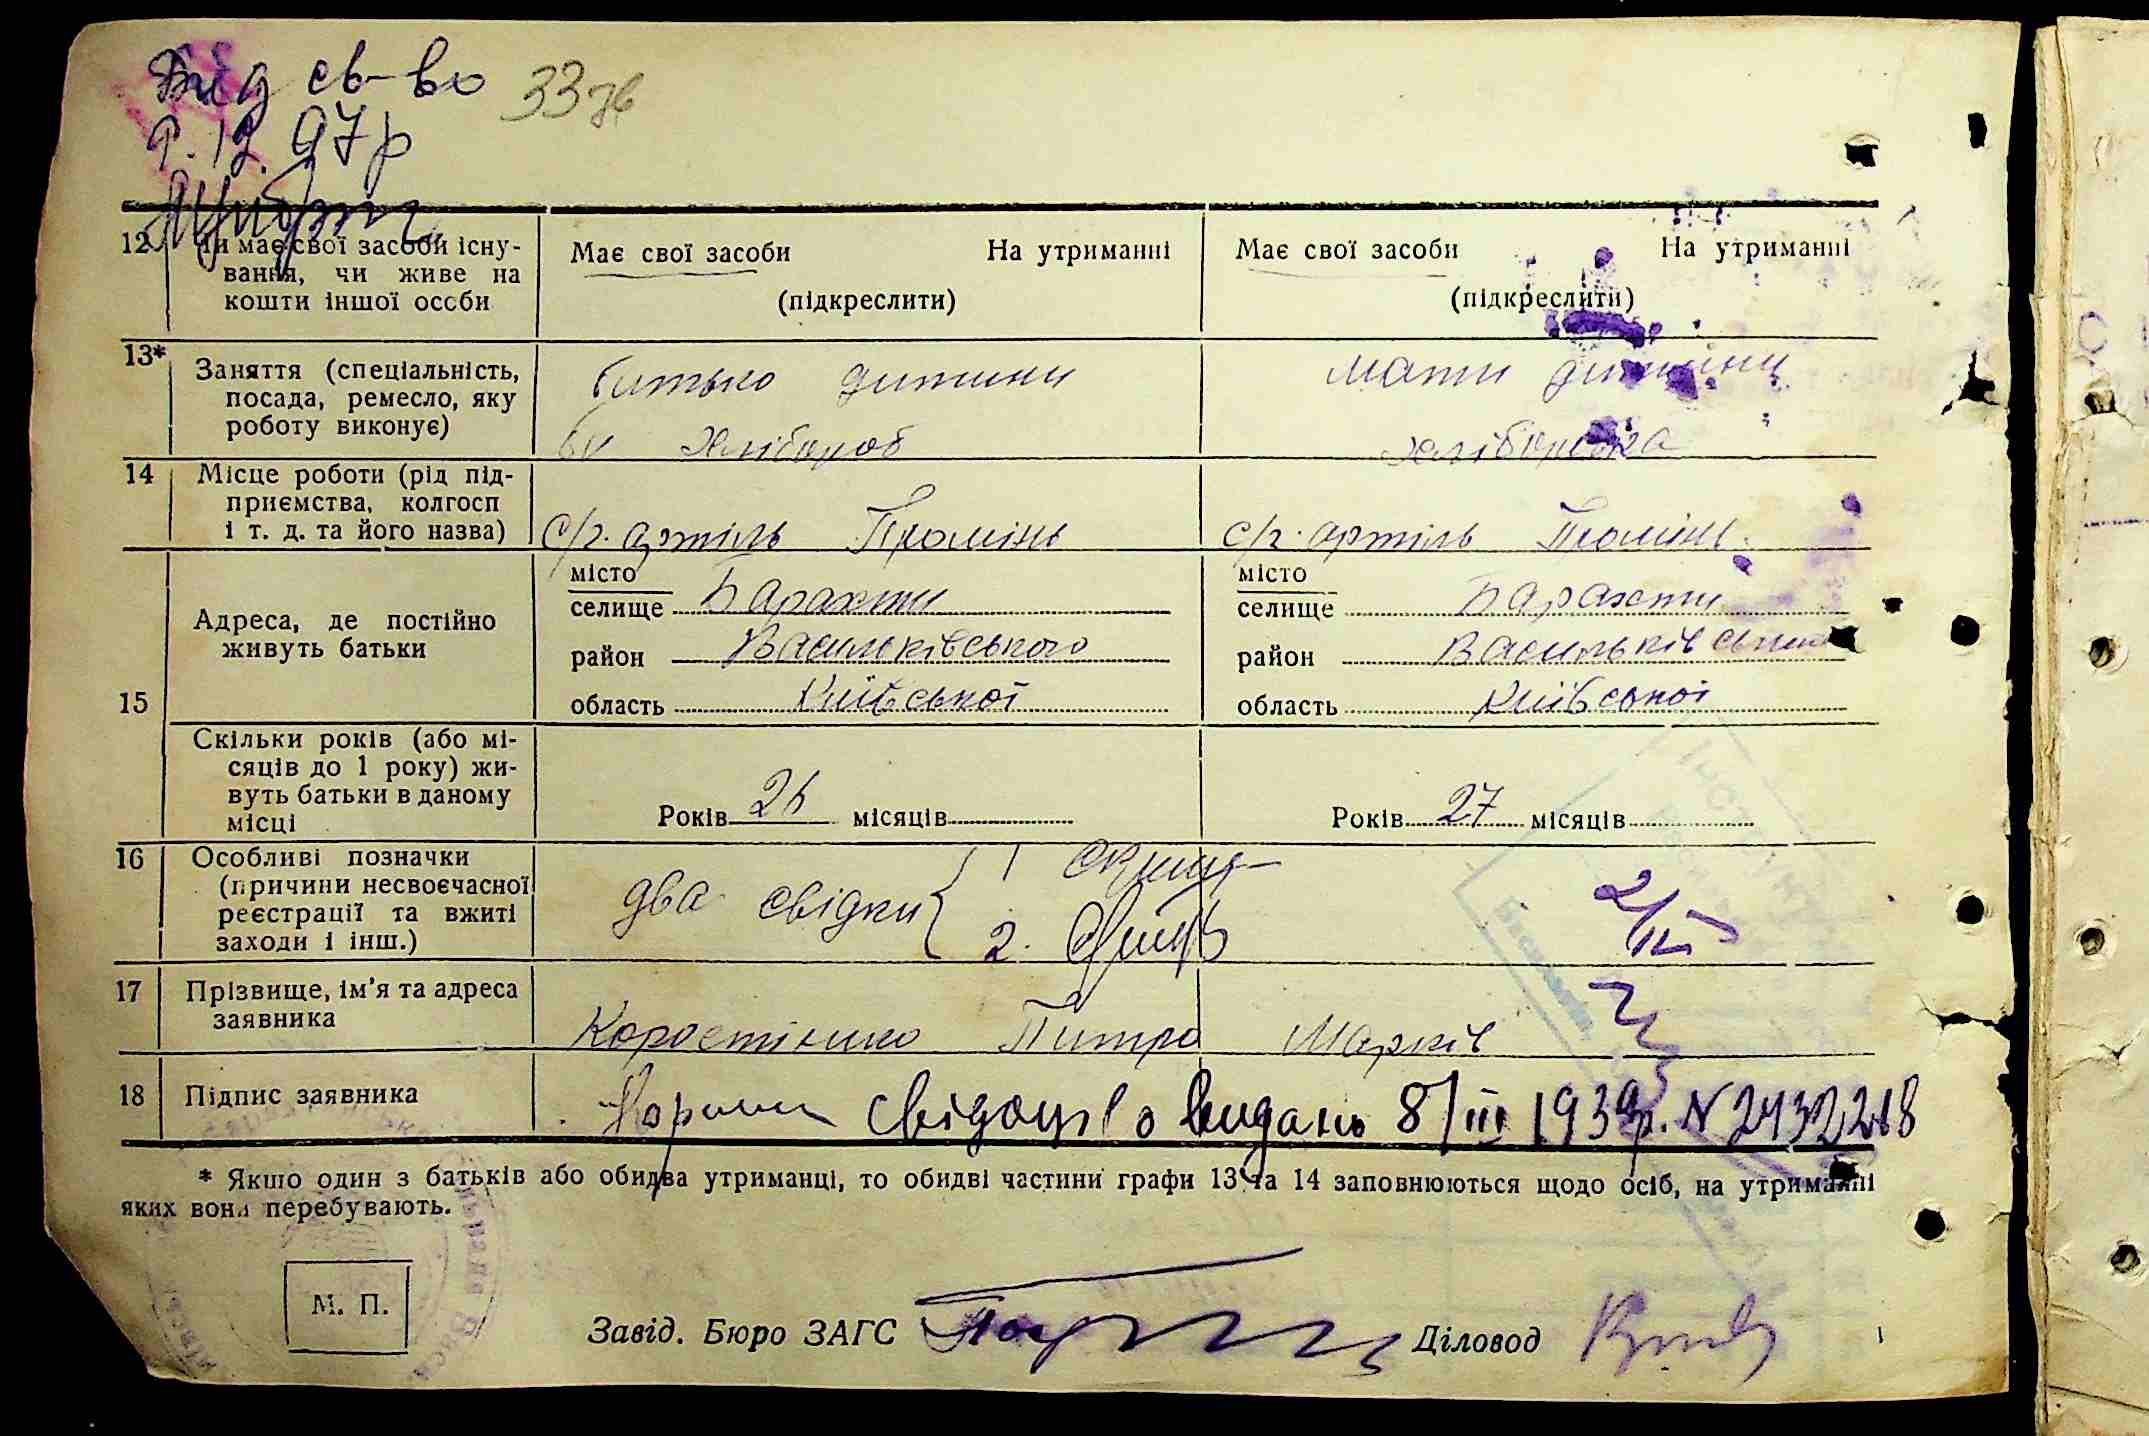 св-во 33 зв
12. 97 р
12 Чи має свої засоби існу-
вання, чи живе на
кошти іншої особи
Має свої засоби На утриманні
(підкреслити)
Має свої засоби На утриманні
(підкреслити)
13* Заняття (спеціальність,
посада, ремесло, яку
роботу виконує)
батько дитини
хлібороб
мати дитини
хліборобка
14 Місце роботи (рід під-
приємства, колгосп
і т. д. та його назва)
с/г. артіль Промінь
с/г. артіль Промінь
15 Адреса, де постійно
живуть батьки
місто
селище Барахти
район Васильківського
область Київської
місто
селище Барахти
район Васильківського
область Київської
Скільки років (або мі-
сяців до 1 року) жи-
вуть батьки в даному
місці
Років 26 місяців
Років 27 місяців
16 Особливі позначки
(причини несвоєчасної
реєстрації та вжиті
заходи і інш.)
два свідки { 1
2.
17 Прізвище, ім'я та адреса
заявника
Петро Марків
18 Підпис заявника
свідоцтво видано 8/III 1939р. N 2432218
* Якшо один з батьків або обидва утриманці, то обидві частини графи 13 та 14 заповнюються щодо осіб, на утриманні
яких вони перебувають.
М. П.
Завід. Бюро ЗАГС Діловод